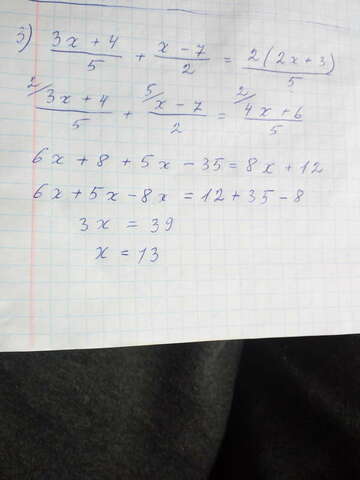 3) (3x + 4)/5 + (x - 7)/2 = 2(2x + 3)/5
2/ (3x + 4)/5 + 5/ (x - 7)/2 = 2/ (4x + 6)/5
6x + 8 + 5x - 35 = 8x + 12
6x + 5x - 8x = 12 + 35 - 8
3x = 39
x = 13